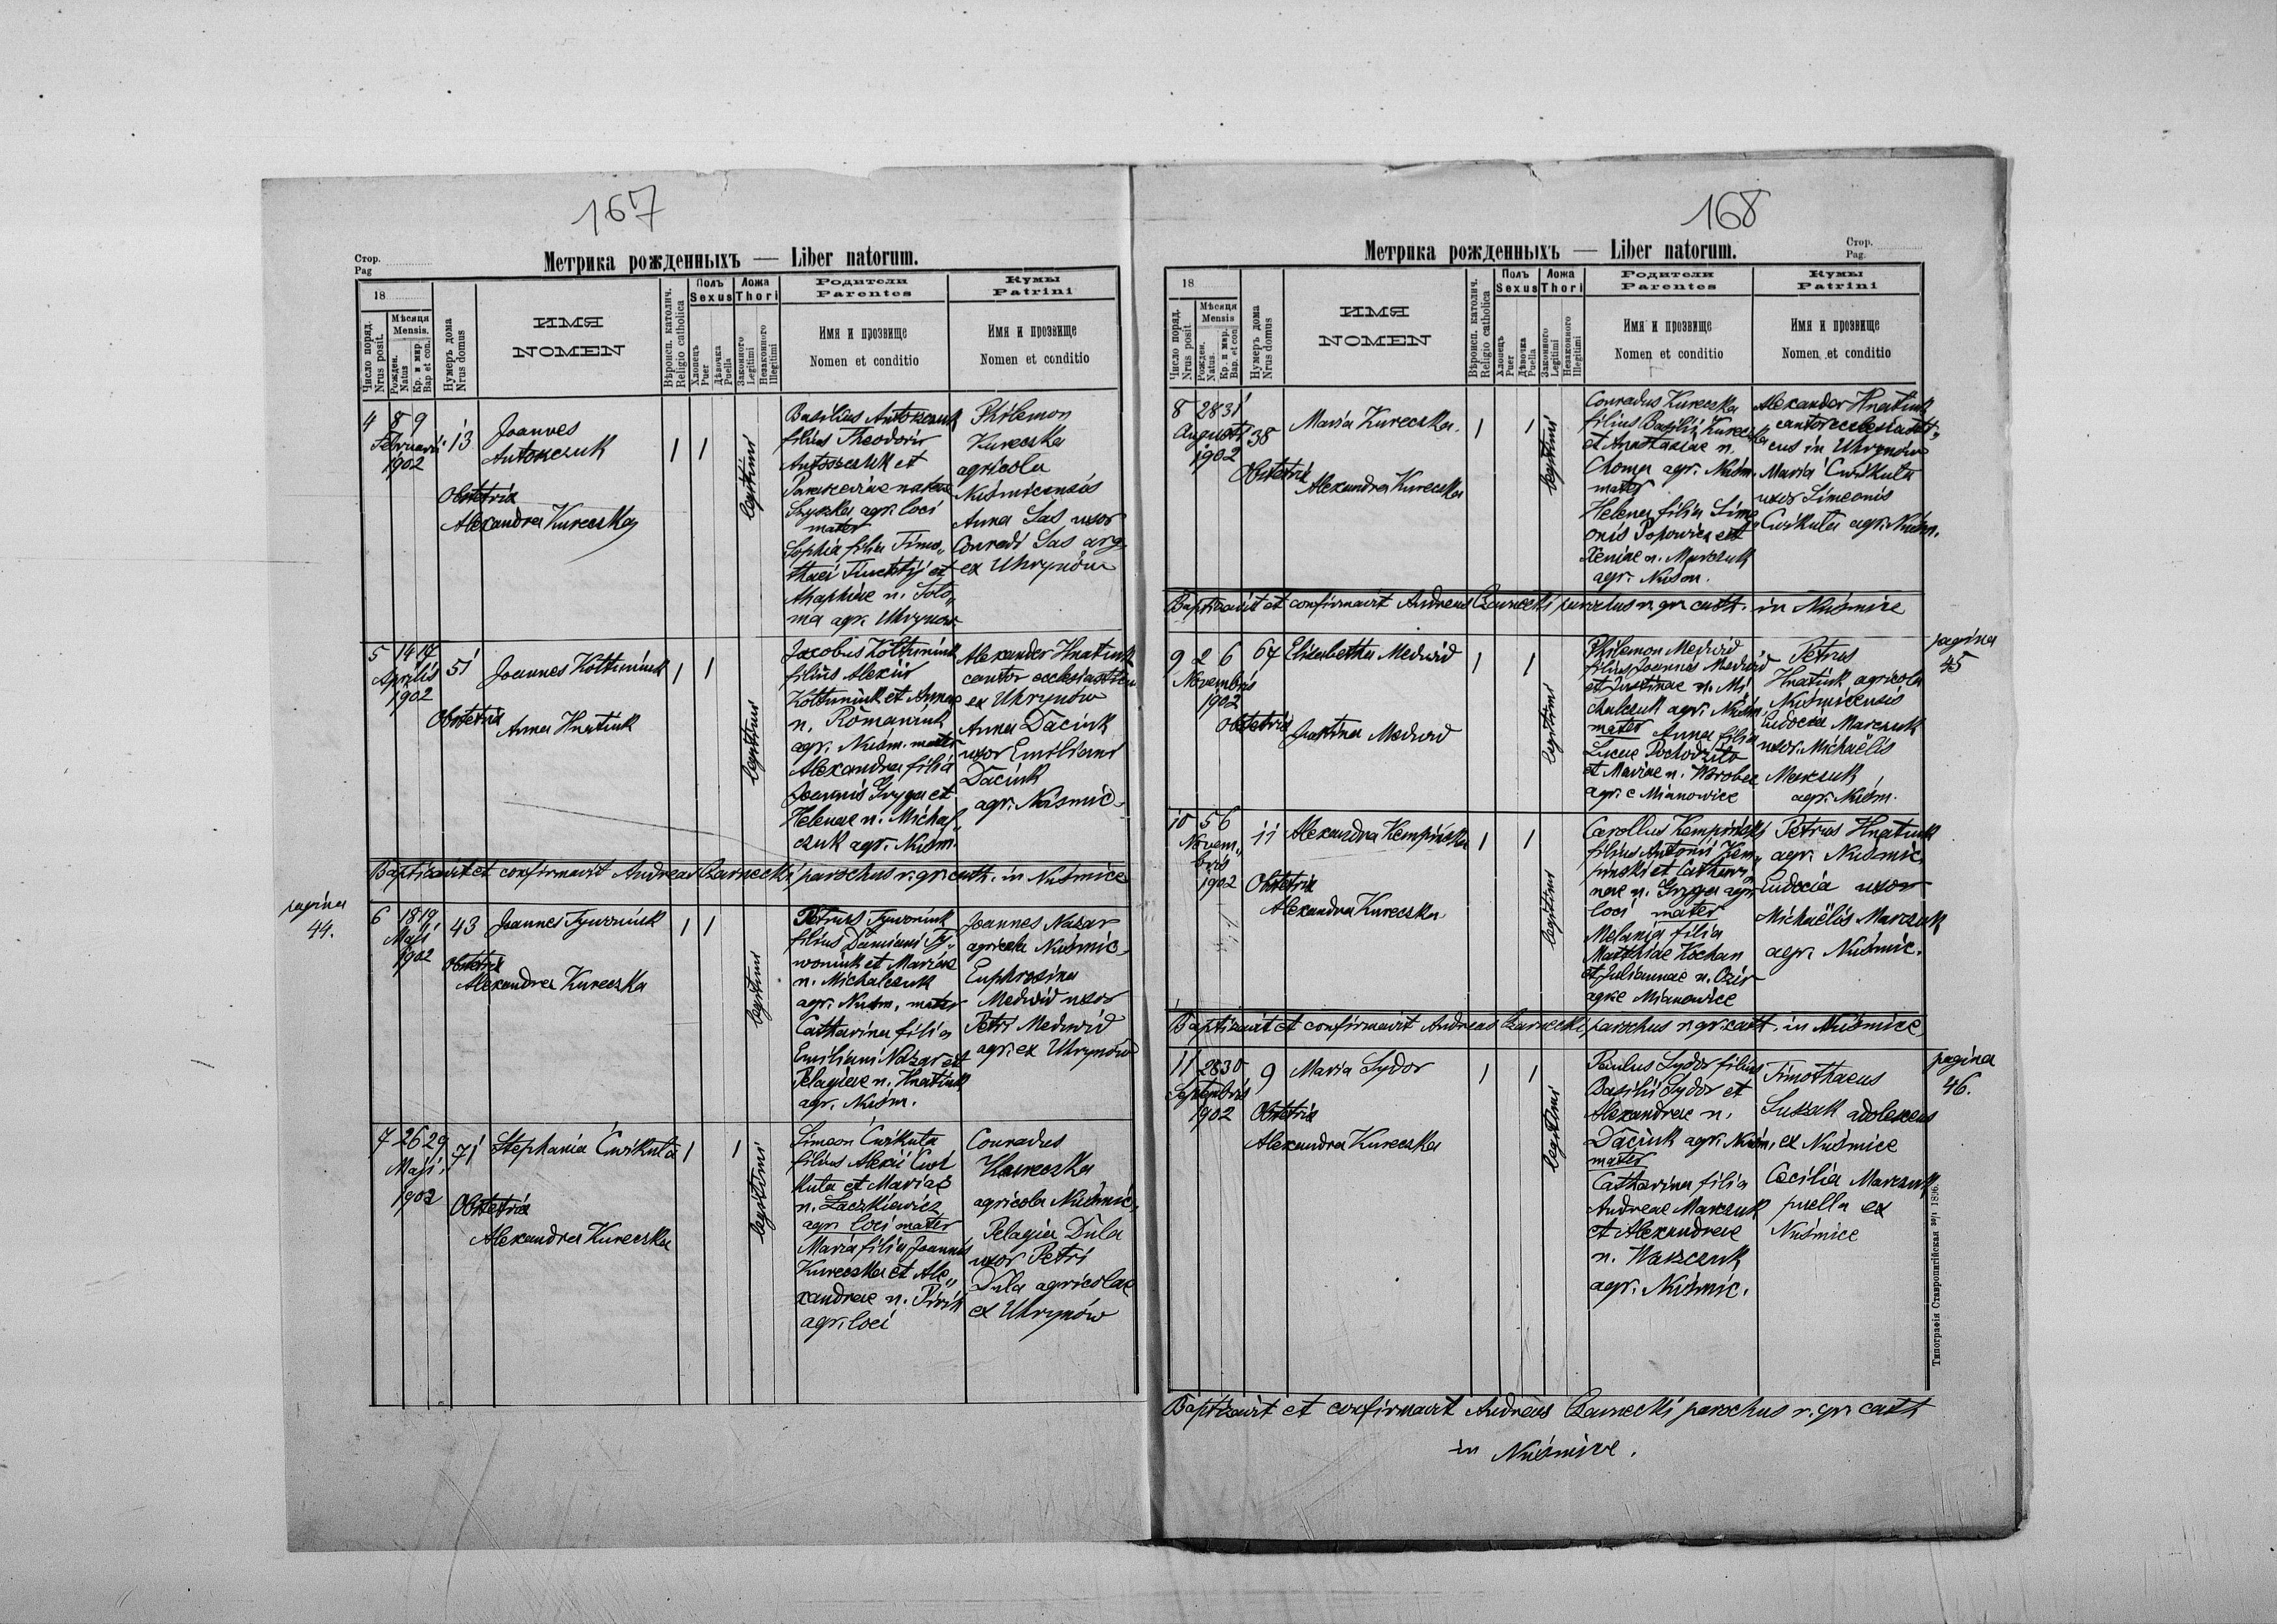 167
Стор.
Pag
Метрика рожденныхъ — Liber natorum.
18
Число поряд.
Nrus posit.
Мѣсяця
Mensis.
Рожден.
Natus
Кр. и мир.
Bap et con.
Нумеръ дома
Nrus domus
ИМЯ
NOMEN
Вѣроисп. католич.
Religio catholica
Полъ
Sexus
Хлопецъ
Puer
Дѣвочка
Puella
Ложа
Thori
Законного
Legitimi
Незаконного
Illegitimi
Родители
Parentes
Имя и прозвище
Nomen et conditio
Кумы
Patrini
Имя и прозвище
Nomen et conditio
4 8 9
Februarii
1902
13
Joannes
Antoszczuk
Obstetrix
Alexandra Kureczka
1 1
legitimi
Basilius Antoszczuk
filius Theodori
Antoszczuk et
Parasceviae natae
Hryszka agr. loci
mater
Sophia filia Timo„
thaei et
Agaphiae n. Soto„
ma agr. Uhrynów
Philemon
Kureczka
agricola
Nuśmicensis
Anna Sas uxor
Conradi Sas agr.
ex Uhrynów
5 14 17
Aprilis
1902
51
Joannes Kottuniuk
Obstetrix
Anna Hnatiuk
1 1
legitimi
Jacobus Kottuniuk
filius Alexii
Kottuniuk et Annae
n. Romanczuk
agr. Nuśm. mater
Alexandra filia
Joannis Gryga et
Helenae n. Michal„
czuk agr. Nuśm.
Alexander Hnatiuk
cantor ecclesiasticus
ex Uhrynów
Anna Daciuk
uxor Emiliani
Daciuk
agr. Nuśmic.
Baptisavit et confirmavit Andreas Czarnecki parochus r. gr. cath. in Nuśmice
pagina
44.
6 18 19
Maji
1902
43
Joannes Tywoniuk
Obstetrix
Alexandra Kureczka
1 1
legitimi
Petrus Tywoniuk
filius Damiani Ty„
woniuk et Mariae
n. Michalczuk
agr. Nuśm. mater
Catharina filia
Emiliani Nazar et
Pelagiae n. Hnatiuk
agr. Nuśm.
Joannes Nazar
agricola Nuśmic.
Euphrosina
Medwid uxor
Petri Medwid
agr. ex Uhrynów
7 26 29
Maji
1902
71
Stephania Ćwikuta
Obstetrix
Alexandra Kureczka
1 1
legitimi
Simeon Ćwikuta
filius Alexii Ćwi
kuta et Mariae
n. Laczkiewicz
agr. loci mater
Maria filia Joannis
Kureczka et Ale„
xandrae n. Pirih
agr. loci
Conradus
Kureczka
agricola Nuśmic.
Pelagia Dula
uxor Petri
Dula agricolae
ex Uhrynów
168
Метрика рожденныхъ — Liber natorum.
Стор.
Pag.
18
Число поряд.
Nrus posit.
Мѣсяця
Mensis
Рожден.
Natus.
Кр. и мир.
Bap. et con
Нумеръ дома
Nrus domus
ИМЯ
NOMEN
Вѣроисп. католич.
Religio catholica
Полъ
Sexus
Хлопецъ
Puer
Дѣвочка
Puella
Ложа
Thori
Законного
Legitimi
Незаконного
Illegitimi
Родители
Parentes
Имя и прозвище
Nomen et conditio
Кумы
Patrini
Имя и прозвище
Nomen et conditio
8 28 31
Augusti
1902
38
Maria Kureczka.
Obstetrix
Alexandra Kureczka
1 1
legitimi
Conradus Kureczka
filius Basilii Kureczka
et Anastasiae n.
Choma agr. Nuśm.
mater
Helena filia Sime„
onis Popowicz et
Xeniae n. Marczuk
agr. Nuśm.
Alexander Hnatiuk
cantor ecclesiasti„
cus in Uhrynów
Maria Ćwikuta
uxor Simeonis
Ćwikuta agr. Nuśm.
Baptisavit et confirmavit Andreas Czarnecki parochus r. gr. cath. in Nuśmice
pagina
45
9 2 6
Novembris
1902
67
Elisabetha Medwid
Obstetrix
Justina Medwid
1 1
legitimi
Philemon Medwid
filius Joannis Medwid
et Justinae n. Mi
chalczuk agr. Nuśm.
mater Anna filia
Lucae Pochodziło
et Mariae n. Worobec
agr. e Mianowice
Petrus
Hnatiuk agricola
Nuśmicensis
Eudocia Marczuk
uxor Michaëlis
Marczuk
agr. Nuśm.
10 5 6
Novem„
bris
1902
11
Alexandra Kempińska
Obstetrix
Alexandra Kureczka
1 1
legitimi
Carollus Kempiński
filius Antonii Kem„
piński et Cathari„
nae n. Gryga agr.
loci mater
Melania filia
Matthiae Kochan
et Juliannae n.
agr. e Mianowice
Petrus Hnatiuk
agr. Nuśmic.
Eudocia uxor
Michaëlis Marczuk
agr. Nuśmic.
Baptisavit et confirmavit Andreas Czarnecki parochus r. gr. cath. in Nuśmice
pagina
46.
11 28 30
Septembris
1902
9
Maria Sydor
Obstetrix
Alexandra Kureczka
1 1
legitimi
Paulus Sydor filius
Basilii Sydor et
Alexandrae n.
Daciuk agr. Nuśm.
mater
Catharina filia
Andreae Marczuk
et Alexandrae
n. Waszczuk
agr. Nuśmic.
Timothaeus
Suszak adolescens
ex Nuśmice
Cecilia Marczuk
puella ex
Nuśmice
Baptisavit et confirmavit Andreas Czarnecki parochus r. gr. cath
in Nuśmice.
Типографія Ставропигійская 1896.